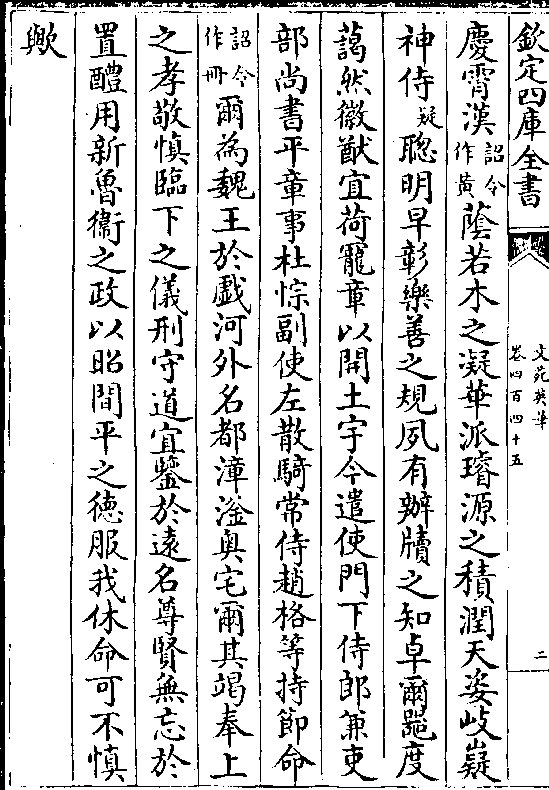 欽定四庫全書
文苑英華
卷四百四十五
二
慶霄漢詔令作黄蔭若木之凝華派璿源之積潤天姿岐嶷
神侍疑聰明早彰樂善之規夙有辦牘之知卓爾䟫度
藹然徽猷宜荷寵章以開土宇今遣使門下侍郎兼吏
部尚書平章事杜悰副使左散騎常侍趙格等持節命
詔令作冊爾為魏王於戲河外名都漳滏奥宅爾其竭奉上
之孝敬慎臨下之儀刑守道宜鑒於逺名尊賢無忘於
置醴用新魯衛之政以昭間平之徳服我休命可不慎
歟